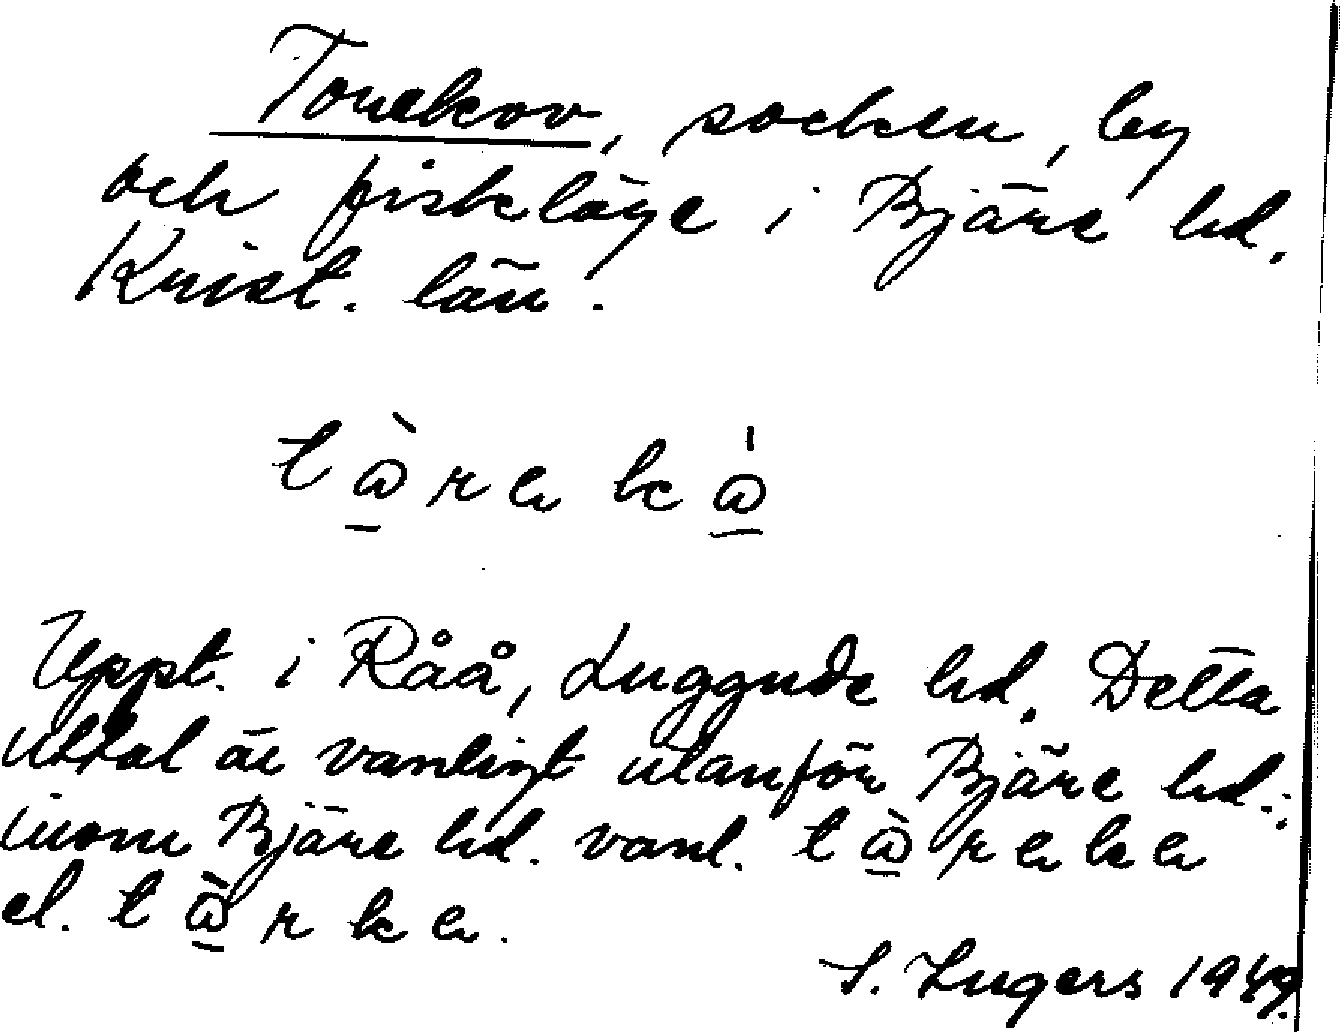 Torekov, socken, by
och fiskeläge i Bjäre hd.
Krist. län.
t ꭃ̀ r ə k ꭃ̍
Uppt. i Råå, Luggude hd. Detta
uttal är vanligt utanför Bjäre hd.;
inom Bjäre hd. vanl.
el.
S. Ingers 1949.